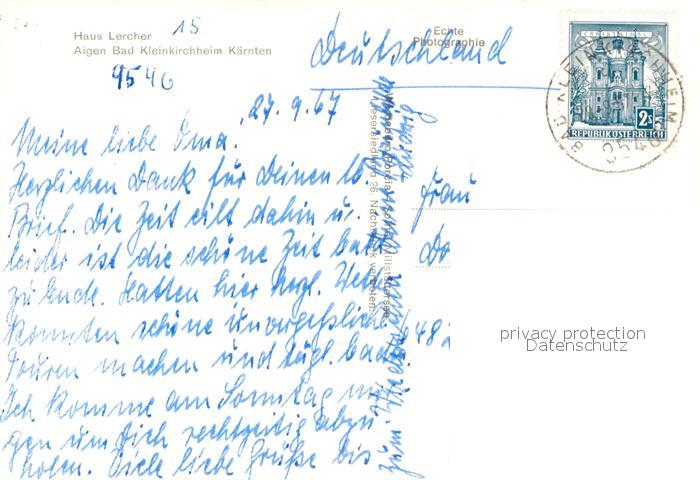 Haus Lercher 15
Aigen Bad Kleinkirchheim Kärnten
9546
Deutschland
Echte
Photographie
CHRISTKINDL
2 S
REPUBLIK ÖSTERREICH
BAD KLEINKIRCHHEIM
9546
27.9.67
Meine liebe Oma.
Herzlichen Dank für Deinen lb.
Brief. Die Zeit eilt dahin u.
leider ist die schöne Zeit bald
zu Ende. Hatten hier herzl.
konnten schöne unvergeßliche
Touren machen und tägl. baden.
Ich komme am Sonntag
gen um Dich rechtzeitig abzu
holen. Viele liebe Grüße bis
zum Wiedersehen
Frau
Do
48
26, Nachdruck verboten.
privacy protection
Datenschutz